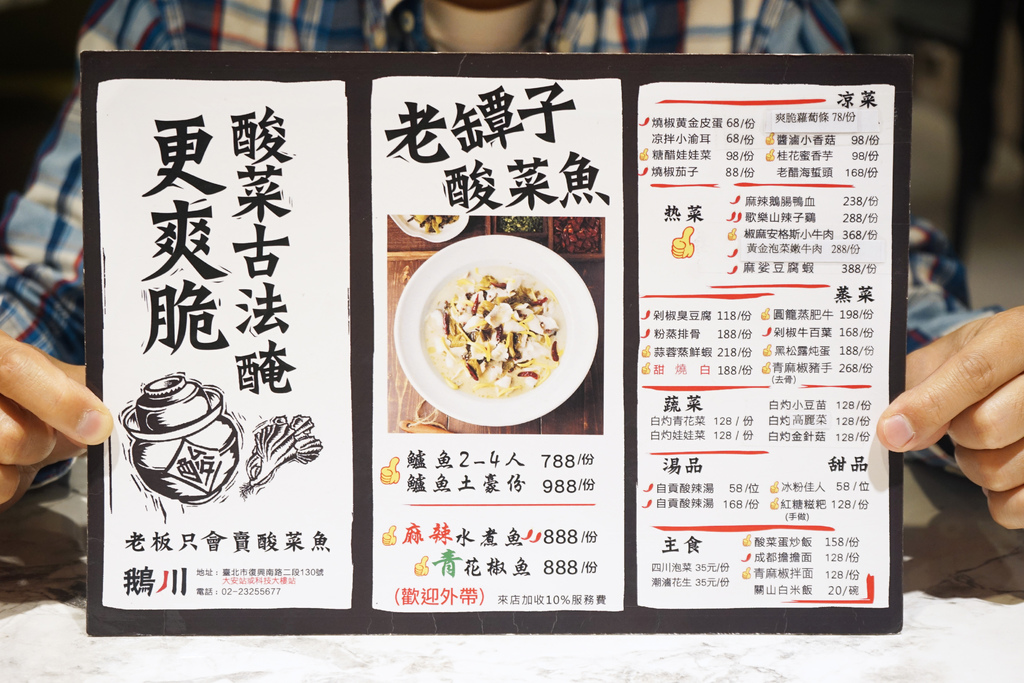 酸菜古法醃
更爽脆
老板只會賣酸菜魚
鵝川
地址：臺北市復興南路二段130號
大安站或科技大樓站
電話：02-23255677
老罈子
酸菜魚
鱸魚2-4人 788/份
鱸魚土豪份 988/份
麻辣水煮魚 888/份
青花椒魚 888/份
(歡迎外帶) 來店加收10%服務費
凉菜
燒椒黃金皮蛋 68/份 爽脆蘿蔔條 78/份
涼拌小渝耳 68/份 醬滷小香菇 98/份
糖醋娃娃菜 98/份 桂花蜜香芋 98/份
燒椒茄子 88/份 老醋海蜇頭 168/份
热菜
麻辣鵝腸鴨血 238/份
歌樂山辣子鷄 288/份
椒麻安格斯小牛肉 368/份
黃金泡菜嫩牛肉 288/份
麻娑豆腐蝦 388/份
蒸菜
剁椒臭豆腐 118/份 圓籠蒸肥牛 198/份
粉蒸排骨 188/份 剁椒牛百葉 168/份
蒜蓉蒸鮮蝦 218/份 黑松露炖蛋 188/份
甜燒白 188/份 青麻椒豬手 268/份
(去骨)
蔬菜
白灼小豆苗 128/份
白灼青花菜 128/份 白灼高麗菜 128/份
白灼娃娃菜 128/份 白灼金針菇 128/份
湯品 甜品
自貢酸辣湯 58/位 冰粉佳人 58/位
自貢酸辣湯 168/份 紅糖糍粑 128/份
(手做)
主食
酸菜蛋炒飯 158/份
成都擔擔面 128/份
四川泡菜 35元/份 青麻椒拌面 128/份
潮滷花生 35元/份 關山白米飯 20/碗